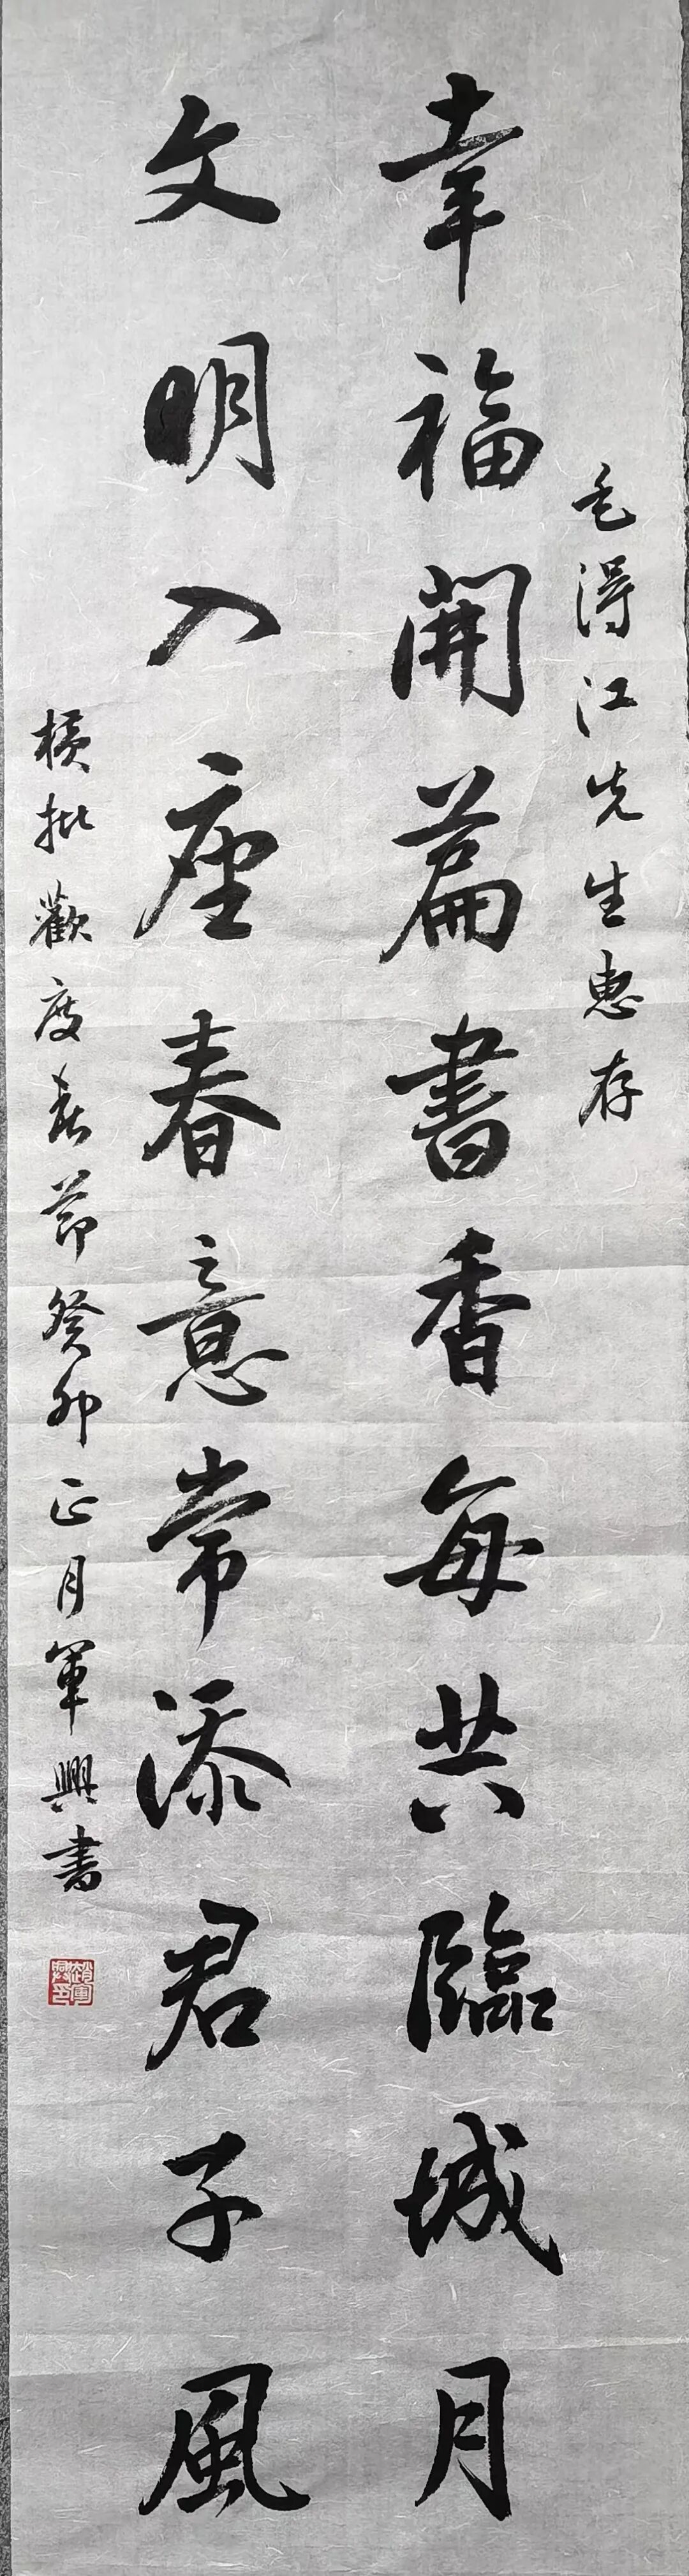 毛得江先生惠存
幸福開篇書香每共臨城月
文明入座春意常添君子風
橫批歡度春節癸卯正月軍興書